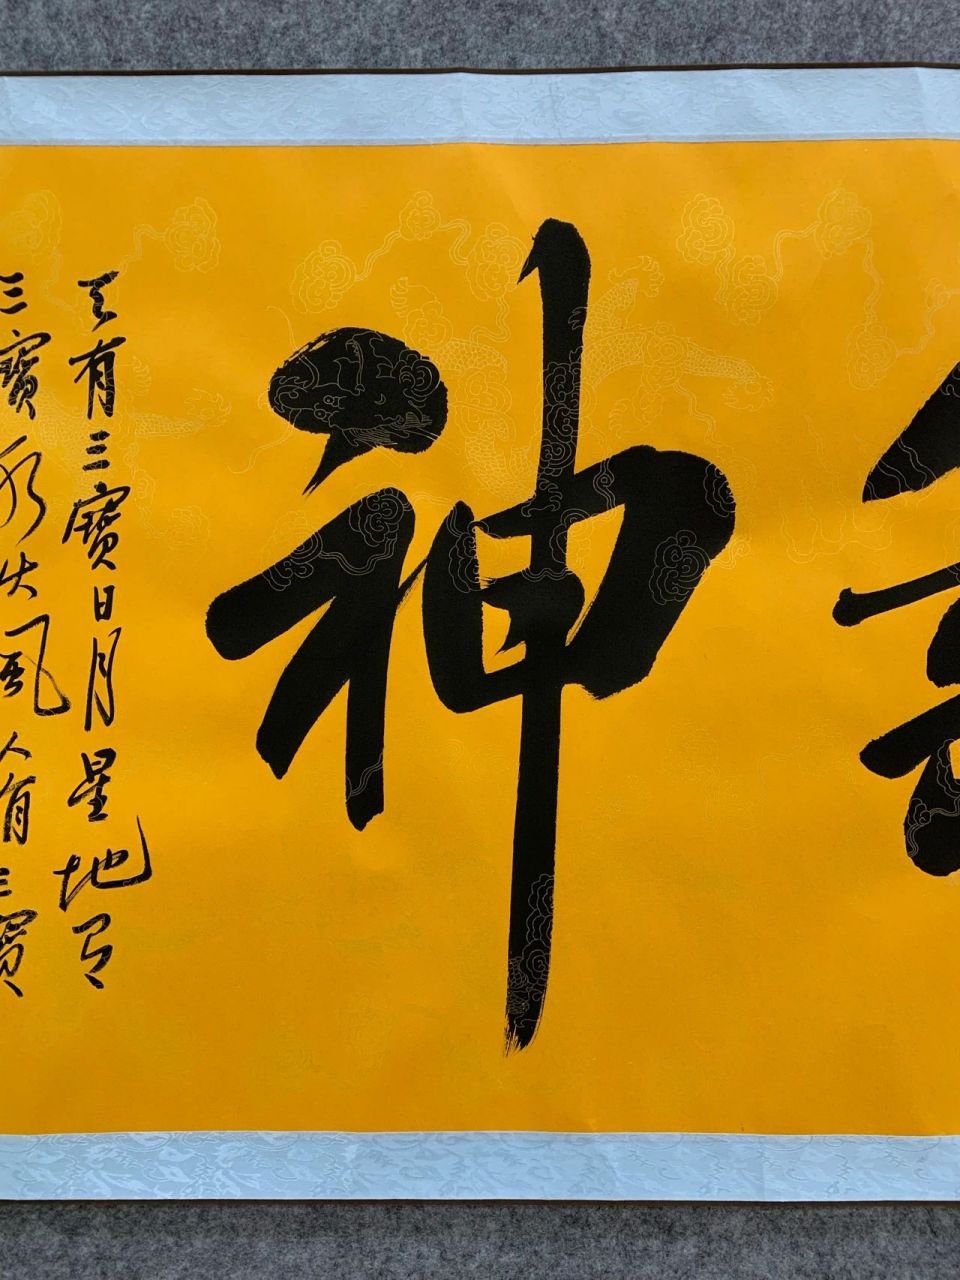 神
天有三寶日月星地有
三寶水火風人有三寶